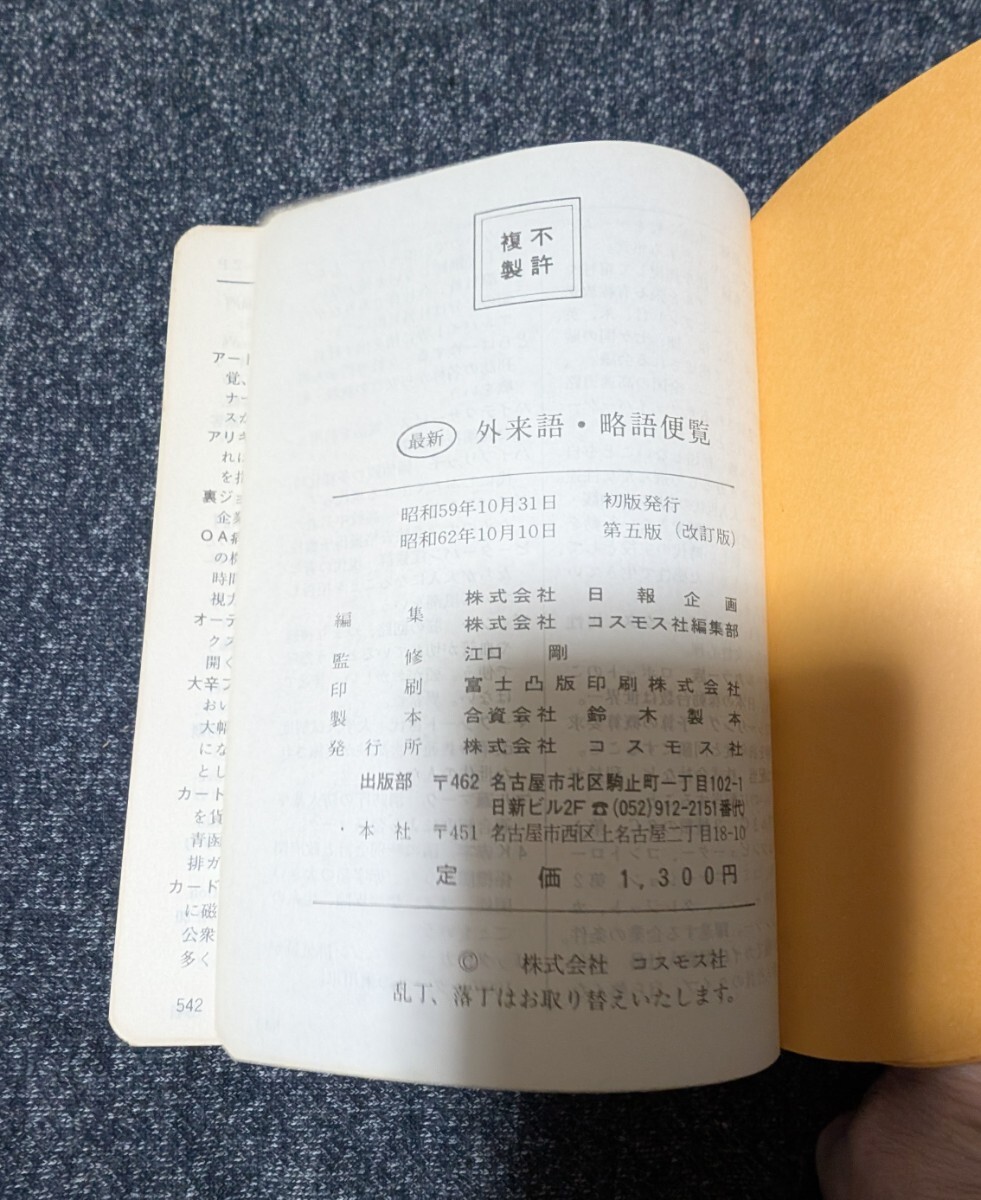 不許
複製
最新 外来語・略語便覧
昭和59年10月31日 初版発行
昭和62年10月10日 第五版（改訂版）
編集 株式会社 日報企画
株式会社 コスモス社編集部
監修 江口 剛
印刷 富士凸版印刷株式会社
製本 合資会社 鈴木製本
発行所 株式会社 コスモス社
出版部 〒462 名古屋市北区駒止町一丁目102-1
日新ビル2F ☎(052)912-2151番代
・本社 〒451 名古屋市西区上名古屋二丁目18-10
定価 1,300円
© 株式会社 コスモス社
乱丁、落丁はお取り替えいたします。
アー
覚、
ナー
スか
アリキ
れに
を指
裏ジョ
企業
OA病
の機
時間
視力
オーテ
クス
開く
大辛ブ
おい
大幅
にな
とし
カード
を貨
青函
排ガ
カード
に磁
公衆
多く
542